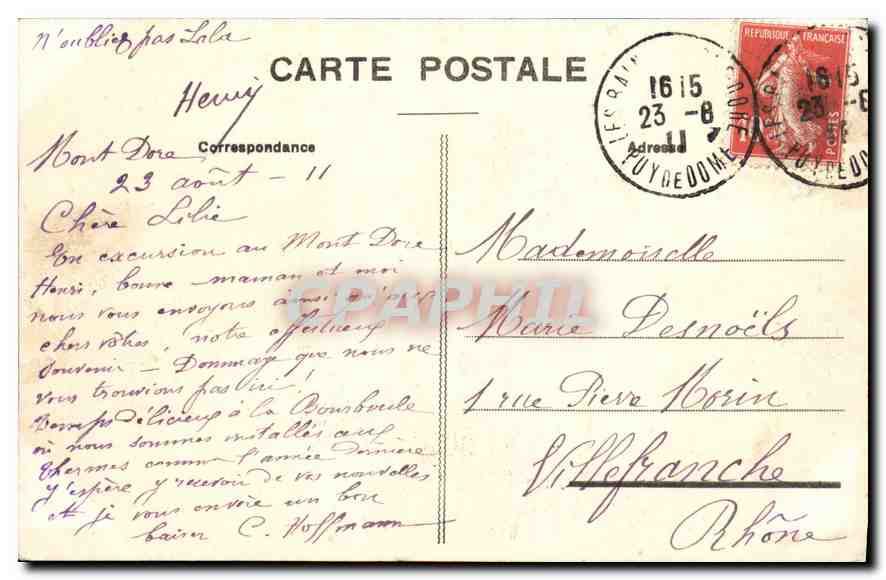 n'oubliez pas Lala
Henry
CARTE POSTALE
Correspondance
Adresse
REPUBLIQUE FRANÇAISE
POSTES
16 15
23 -8
11
PUY DE DOME
16 15
23 -8
PUY DE DOME
Mont Dore
23 août - 11
Chère Lilie
En excursion au Mont Dore
Henri, bonne maman et moi
nous vous envoyons ainsi qu'aux
chers vôtres, notre affectueux
souvenir - Dommage que nous ne
vous trouvions pas ici!
Temps délicieux à la Bourboule
où nous sommes installés aux
Thermes comme l'année dernière
J'espère y recevoir de vos nouvelles
et je vous envoie un bon
baiser C. Hoffmann
Mademoiselle
Marie Desnoëls
1 rue Pierre Morin
Villefranche
Rhône
CPAPHIL